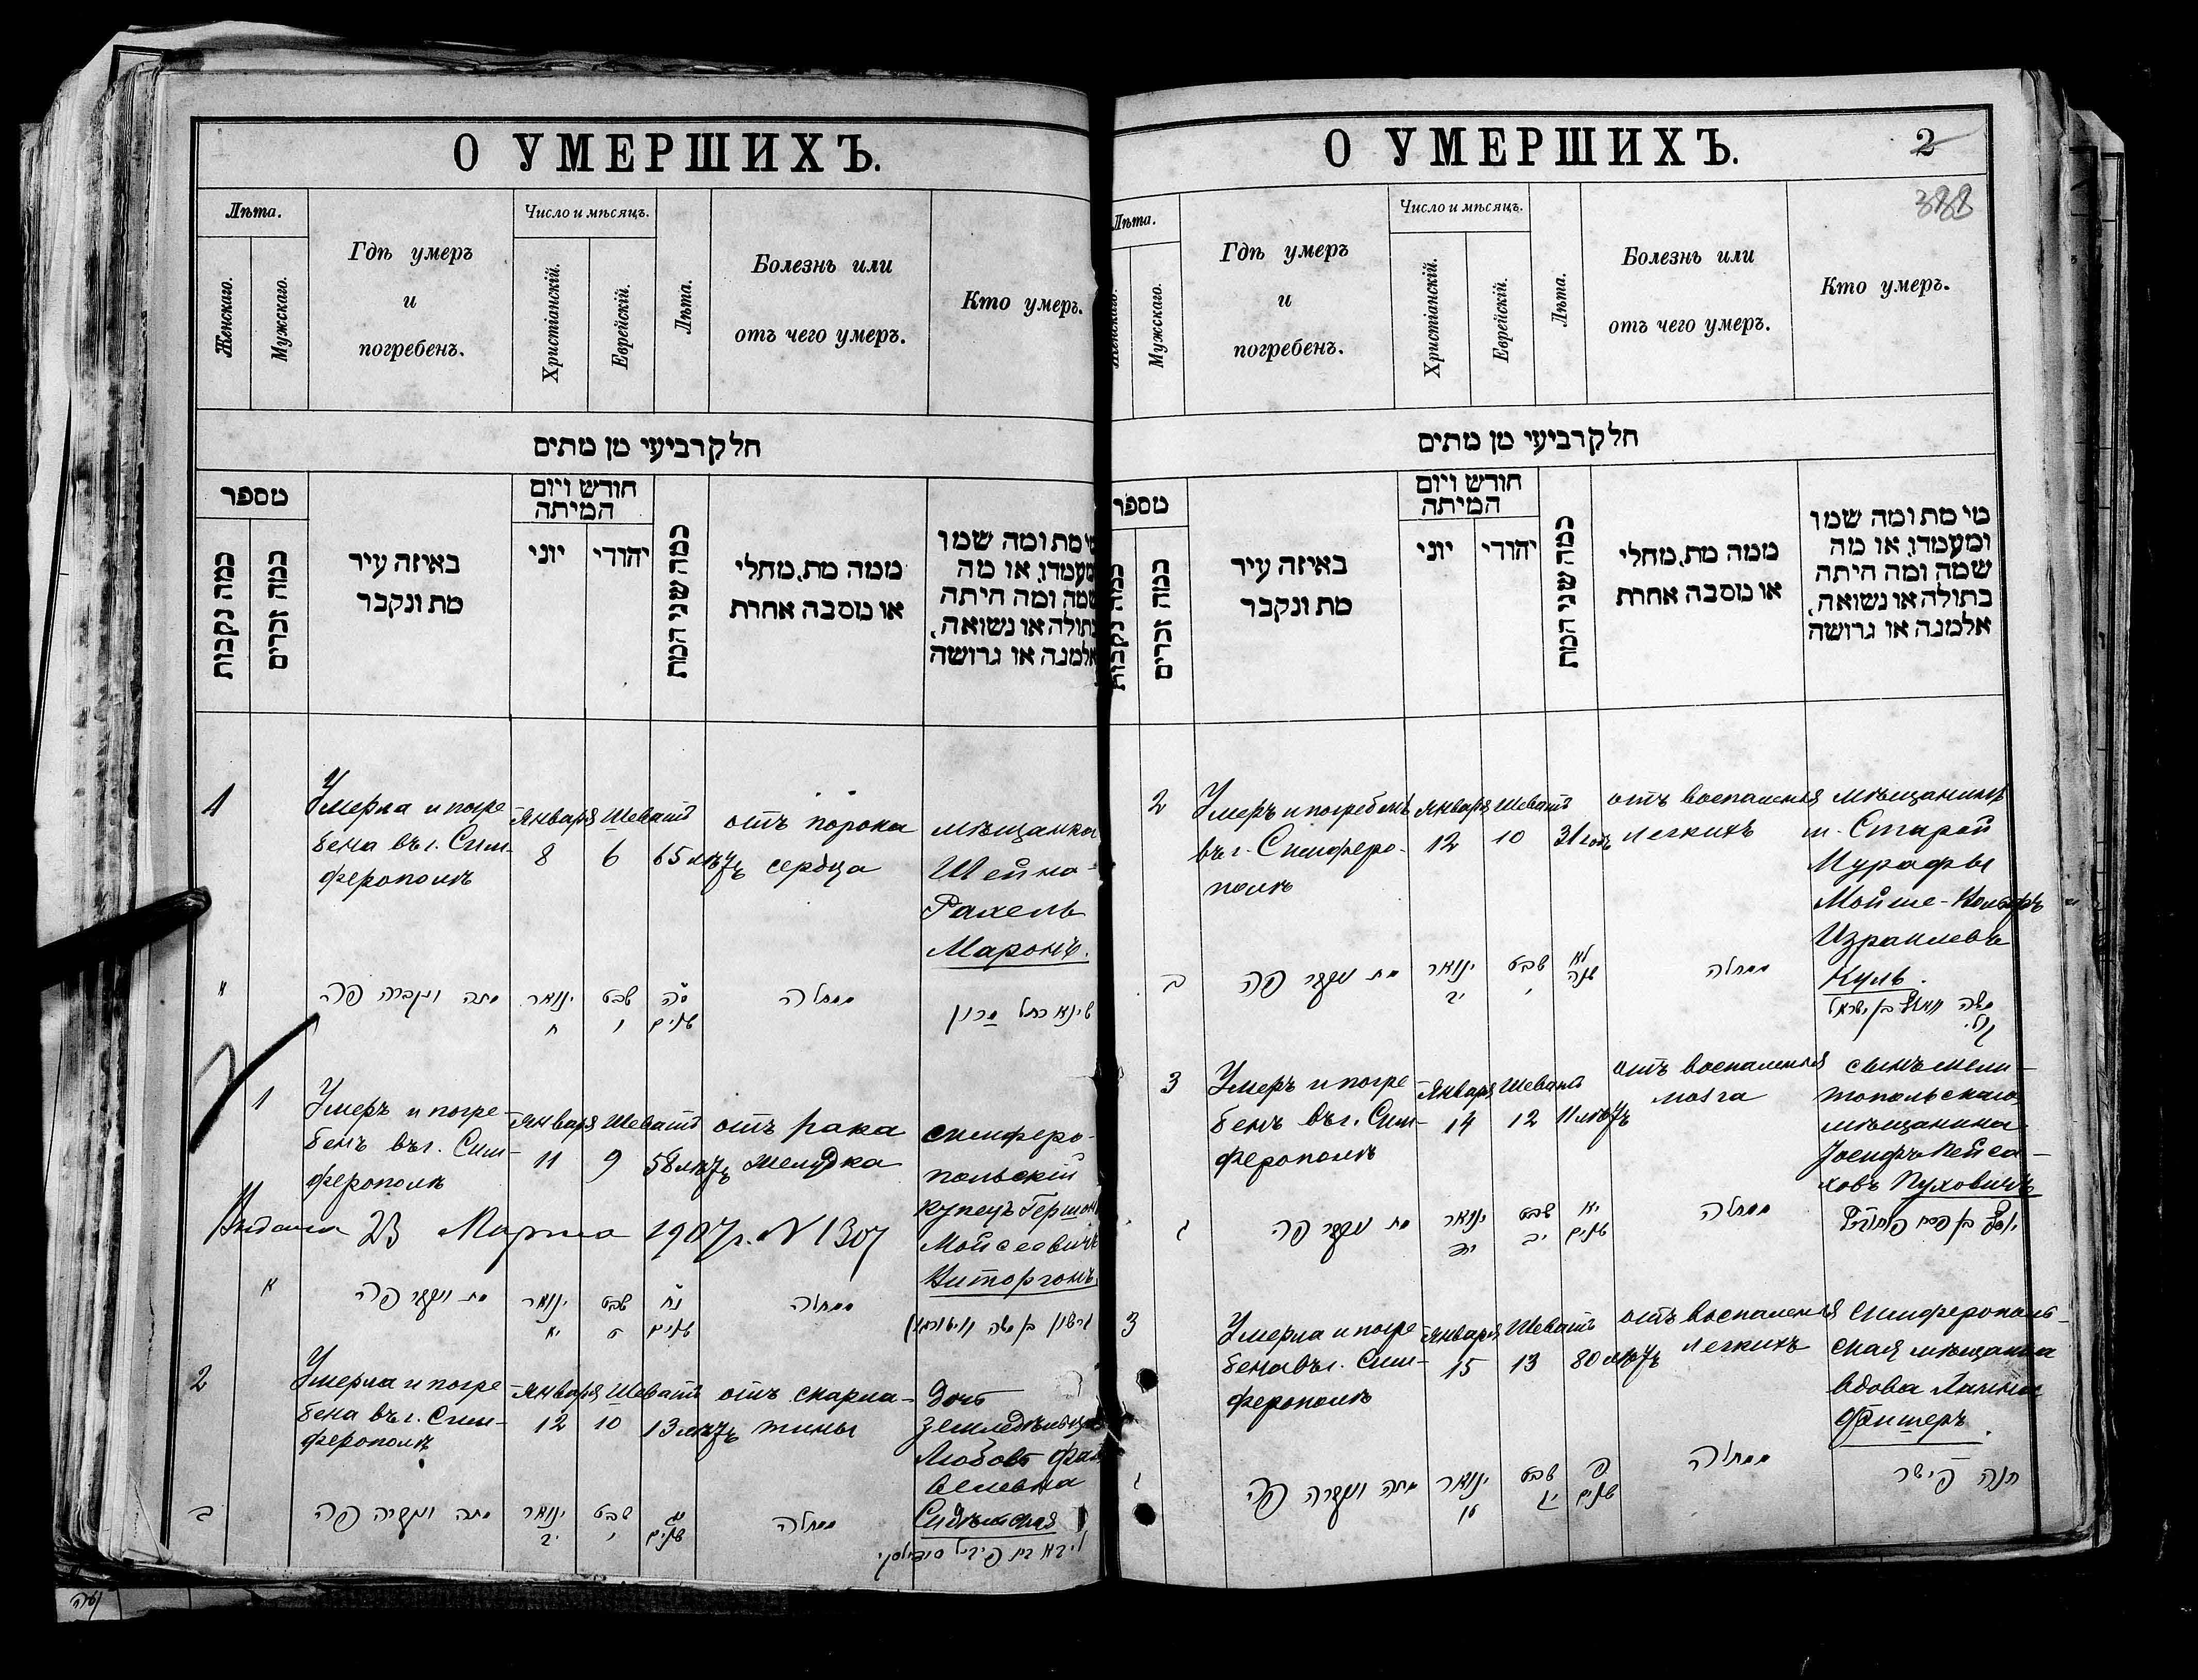 О УМЕРШИХЪ.
Лѣта.
Женскаго.
Мужскаго.
Гдѣ умеръ
и
погребенъ.
Число и мѣсяцъ.
Христіанскій.
Еврейскій.
Лѣта.
Болезнь или
отъ чего умеръ.
Кто умеръ.
חלק רביעי מן מתים
מספר
כמה נקבות
כמה זכרים
באיזה עיר
מת ונקבר
חודש ויום
המיתה
יוני
יהודי
כמה שני המת
ממה מת, מחלי
או מסבה אחרת
מי מת ומה שמו
ומעמדו, או מה
שמה ומה היתה
בתולה או נשואה,
אלמנה או גרושה
1
Умерла и погре-
бена въ г. Сим-
ферополѣ
Января
8
Шеватъ
6
65 лѣтъ
отъ порока
сердца
мѣщанка
Шейна-
Рахель
Маронъ.
מתה ונקברה פה
ינואר
ח
שבט
ו
סה
שנים
ממחלה
שיינא רחל מרון
1
Умеръ и погре-
бенъ въ г. Сим-
ферополѣ
Января
11
Шеватъ
9
58 лѣтъ
отъ рака
желудка
симферо-
польскій
купецъ Гершонъ
Мойсеевичъ
Выдана 23 Марта 1907 г. № 1307
א
מת ונקבר פה
ינואר
יא
שבט
ט
נח
שנים
ממחלה
גרשון בן משה
2
Умерла и погре-
бена въ г. Сим-
ферополѣ
Января
12
Шеватъ
10
13 лѣтъ
отъ скарла-
тины
дочь
земледѣльца
Любовь
ב
מתה ונקברה פה
ינואר
יב
שבט
י
יג
שנים
ממחלה
ליבא בת פייביל
О УМЕРШИХЪ.
2
388
Лѣта.
Женскаго.
Мужскаго.
Гдѣ умеръ
и
погребенъ.
Число и мѣсяцъ.
Христіанскій.
Еврейскій.
Лѣта.
Болезнь или
отъ чего умеръ.
Кто умеръ.
חלק רביעי מן מתים
מספר
כמה נקבות
כמה זכרים
באיזה עיר
מת ונקבר
חודש ויום
המיתה
יוני
יהודי
כמה שני המת
ממה מת, מחלי
או מסבה אחרת
מי מת ומה שמו
ומעמדו, או מה
שמה ומה היתה
בתולה או נשואה,
אלמנה או גרושה
2
Умеръ и погребенъ
въ г. Симферо-
полѣ
Января
12
Шеватъ
10
31 годъ
отъ воспаленія
легкихъ
мѣщанинъ
м. Старой
Мурафы
Мойше-Вольфъ
Израилевъ
Куль.
ב
מת ונקבר פה
ינואר
יב
שבט
י
לא
שנה
ממחלה
משה וואלף בן ישראל
קול.
3
Умеръ и погре-
бенъ въ г. Сим-
ферополѣ
Января
14
Шеватъ
12
11 лѣтъ
отъ воспаленія
мозга
сынъ мели-
топольскаго
мѣщанина
Іосифъ Пейса-
ховъ Пуховичъ
ג
מת ונקבר פה
ינואר
יד
שבט
יב
יא
שנים
ממחלה
יוסף בן פסח פוחוביץ
3
Умерла и погре-
бена въ г. Сим-
ферополѣ
Января
15
Шеватъ
13
80 лѣтъ
отъ воспаленія
легкихъ
симферополь-
ская мѣщанка
вдова Ханна
Фишеръ.
ג
מתה ונקברה פה
ינואר
טו
שבט
יג
פ
שנים
ממחלה
חנה פישר